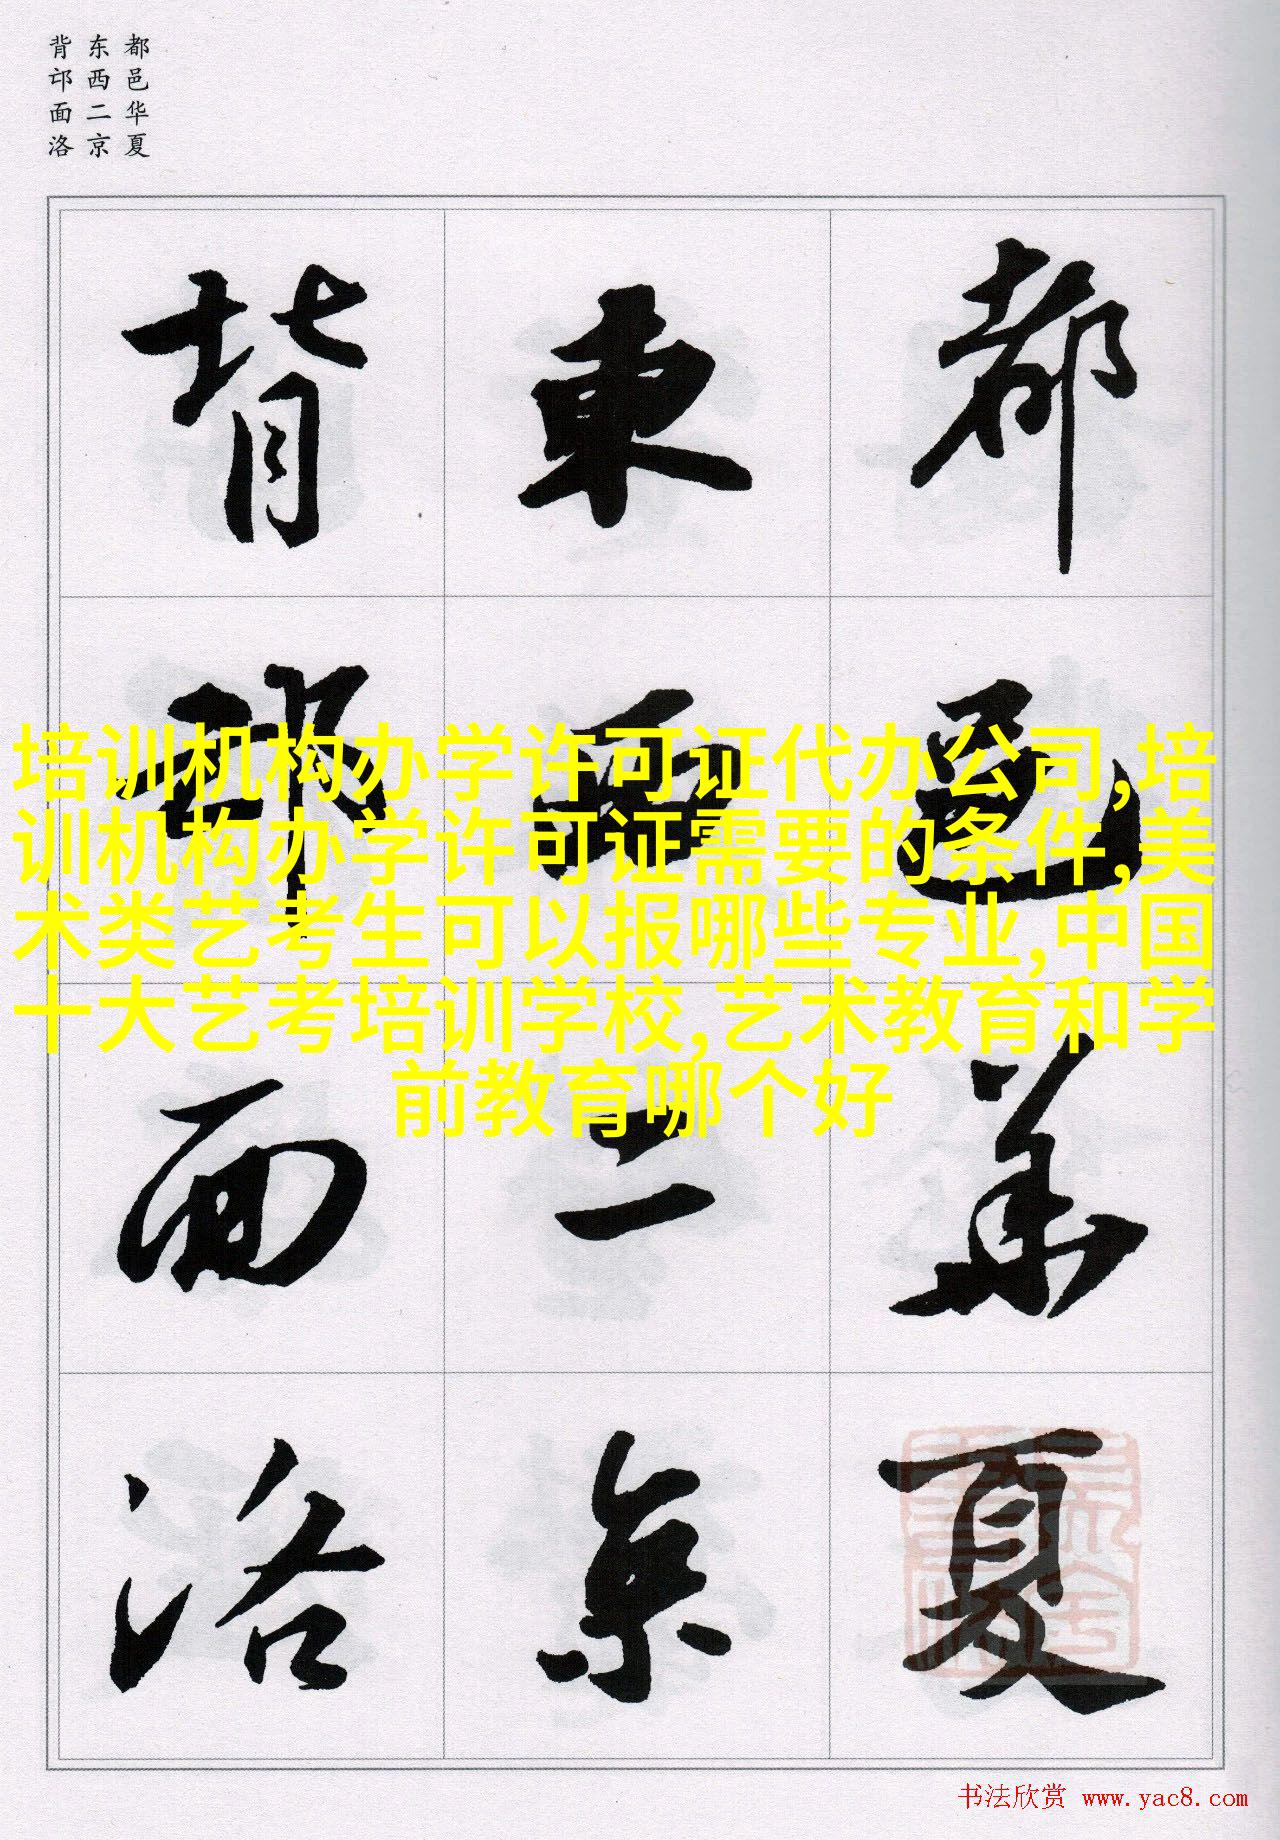 都邑华夏
东西二京
背邙面洛
都邑華夏
東西二京
背邙面洛
培训机构办学许可证代办公司,培
训机构办学许可证需要的条件,美
术类艺考生可以报哪些专业,中国
十大艺考培训学校,艺术教育和学
前教育哪个好
书法欣赏 www.yac8.com